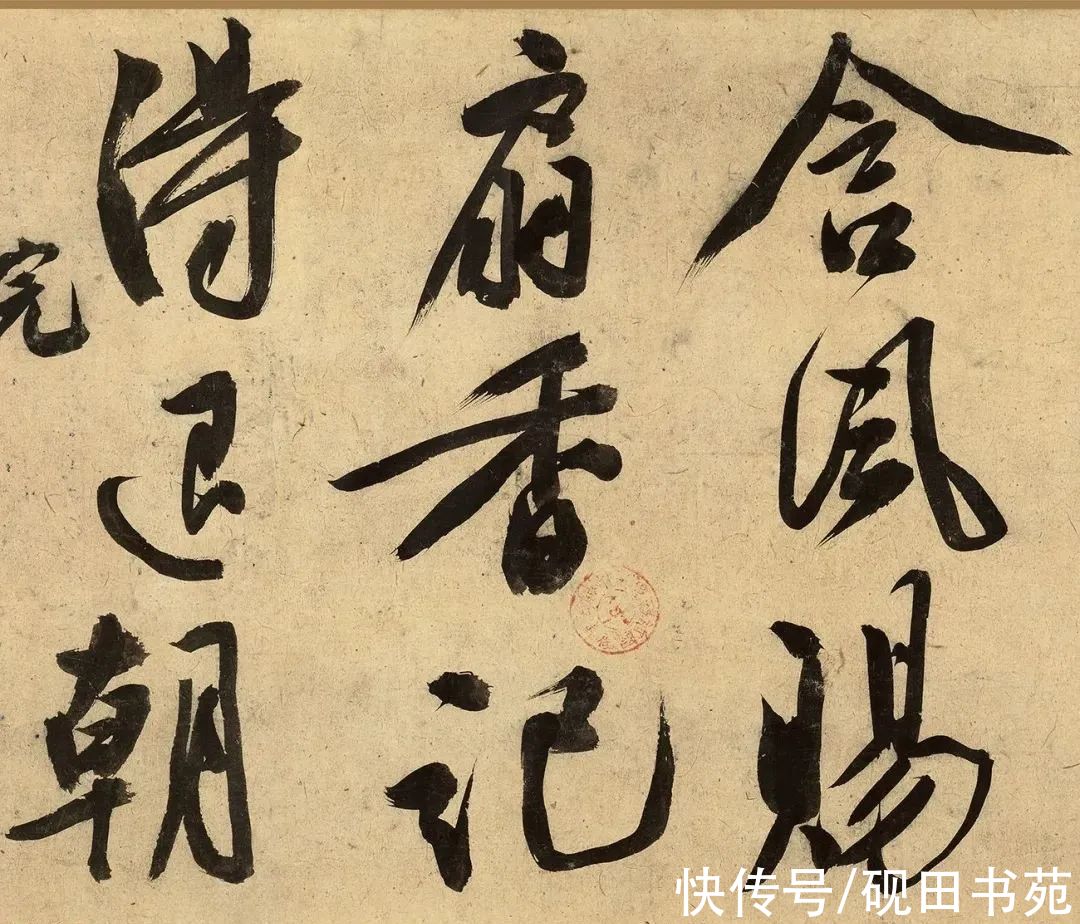 含風賜
扇香記
得退朝
快传号/砚田书苑